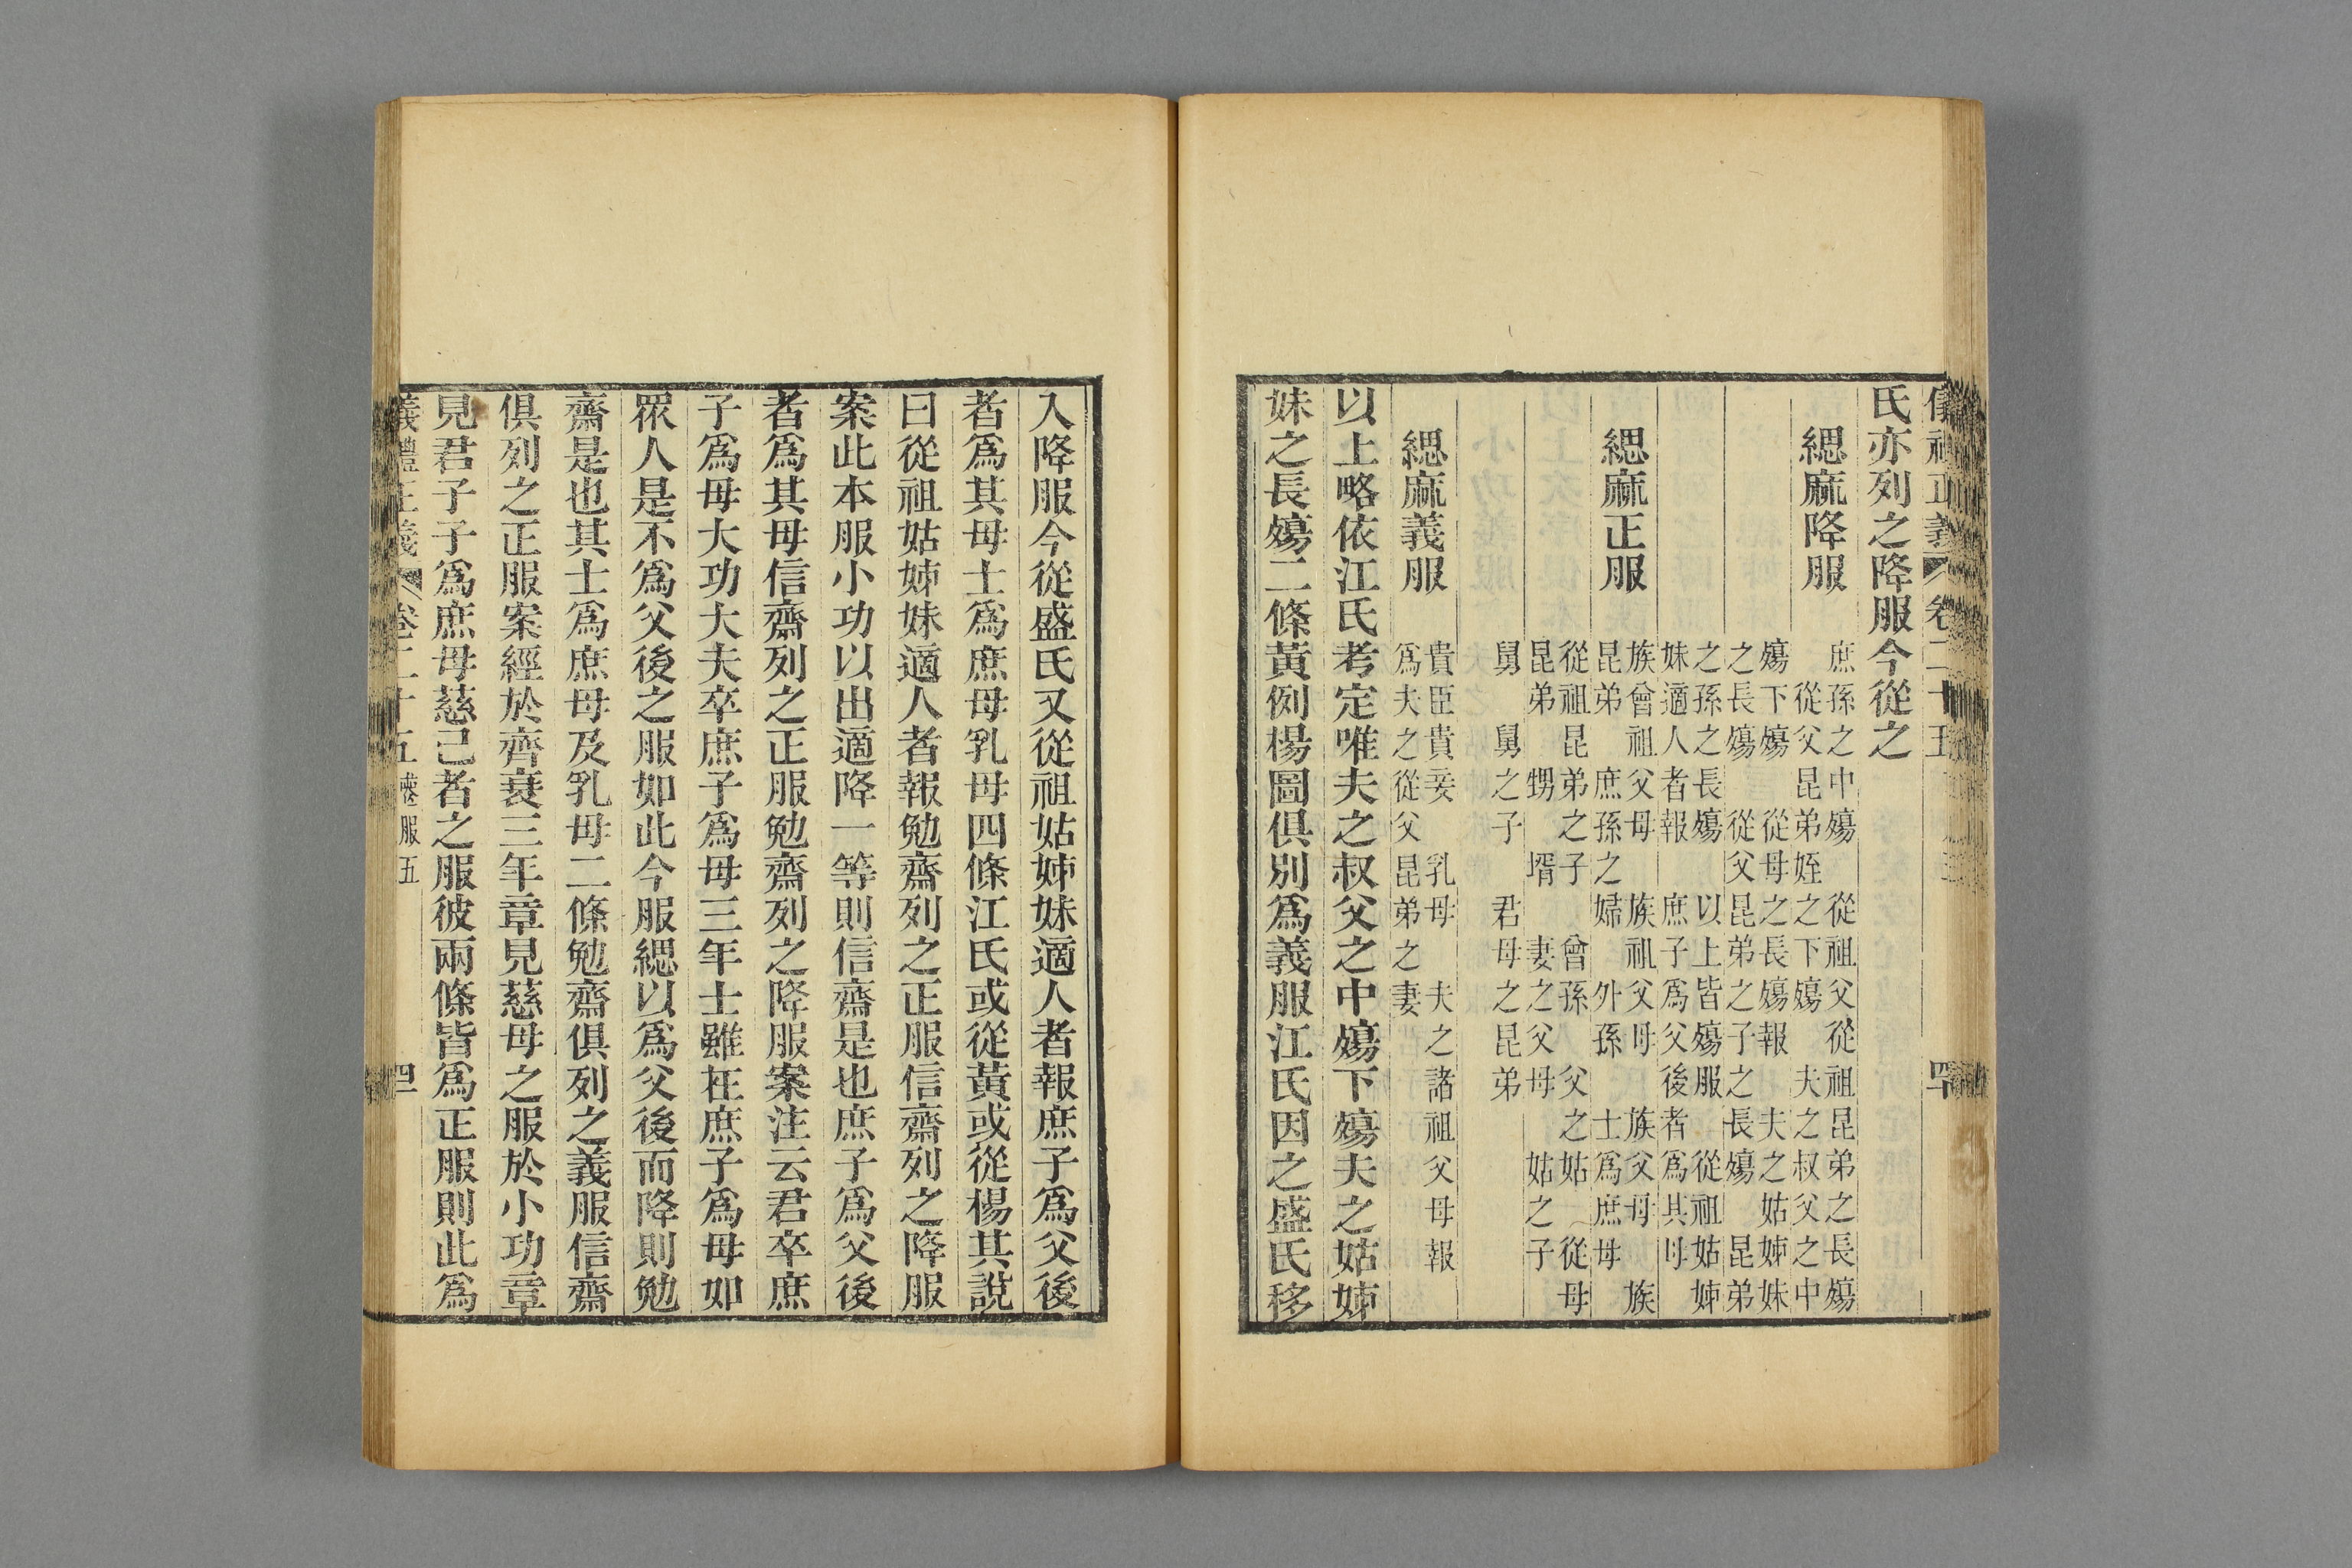 儀禮正義 卷二十五 四十
氏亦列之降服今從之
緦麻降服
庶孫之中殤 從祖父從祖昆弟之長殤
從父昆弟姪之下殤 夫之叔父之中
殤下殤 從母之長殤報 夫之姑姊妹
之長殤 從父昆弟之子之長殤 昆弟
之孫之長殤 以上皆殤服 從祖姑姊
妹適人者報 庶子爲父後者爲其母
緦麻正服
族曾祖父母 族祖父母 族父母 族
昆弟 庶孫之婦 外孫 士爲庶母
從祖昆弟之子 曾孫 父之姑 從母
昆弟 甥 壻 妻之父母 姑之子
舅 舅之子 君母之昆弟
緦麻義服
貴臣貴妾 乳母 夫之諸祖父母報
爲夫之從父昆弟之妻
以上略依江氏考定唯夫之叔父之中殤下殤夫之姑姊
妹之長殤二條黃例楊圖俱別爲義服江氏因之盛氏移
入降服今從盛氏又從祖姑姊妹適人者報庶子爲父後
者爲其母士爲庶母乳母四條江氏或從黃或從楊其說
曰從祖姑姊妹適人者報勉齋列之正服信齋列之降服
案此本服小功以出適降一等則信齋是也庶子爲父後
者爲其母信齋列之正服勉齋列之降服案注云君卒庶
子爲母大功大夫卒庶子爲母三年士雖在庶子爲母如
眾人是不爲父後之服如此今服緦以爲父後而降則勉
齋是也其士爲庶母及乳母二條勉齋俱列之義服信齋
俱列之正服案經於齊衰三年章見慈母之服於小功章
見君子子爲庶母慈己者之服彼兩條皆爲正服則此爲
義禮正義 卷二十五 喪服五 四一